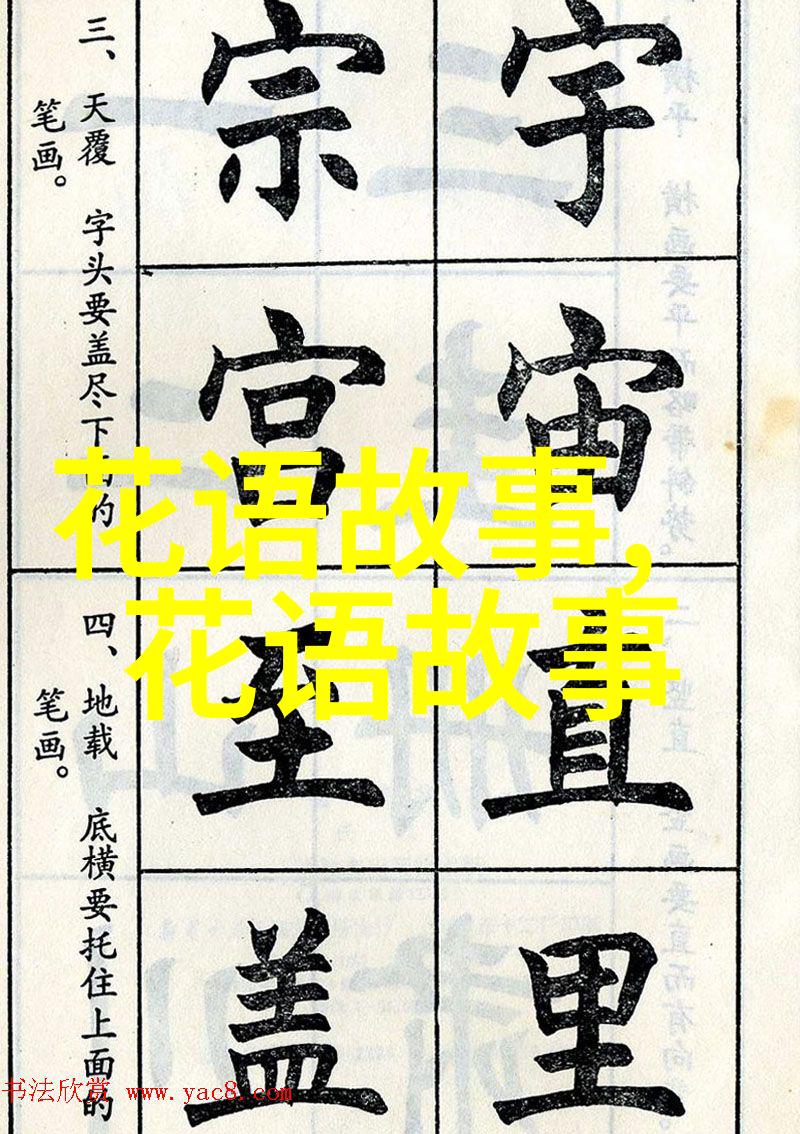 宇宙
宗宫
三、天覆 字头要盖尽下面的
笔画。
直里
至盖
四、地载 底横要托住上面的
笔画。
花语故事,
花语故事
书法欣赏 www.yac8.com